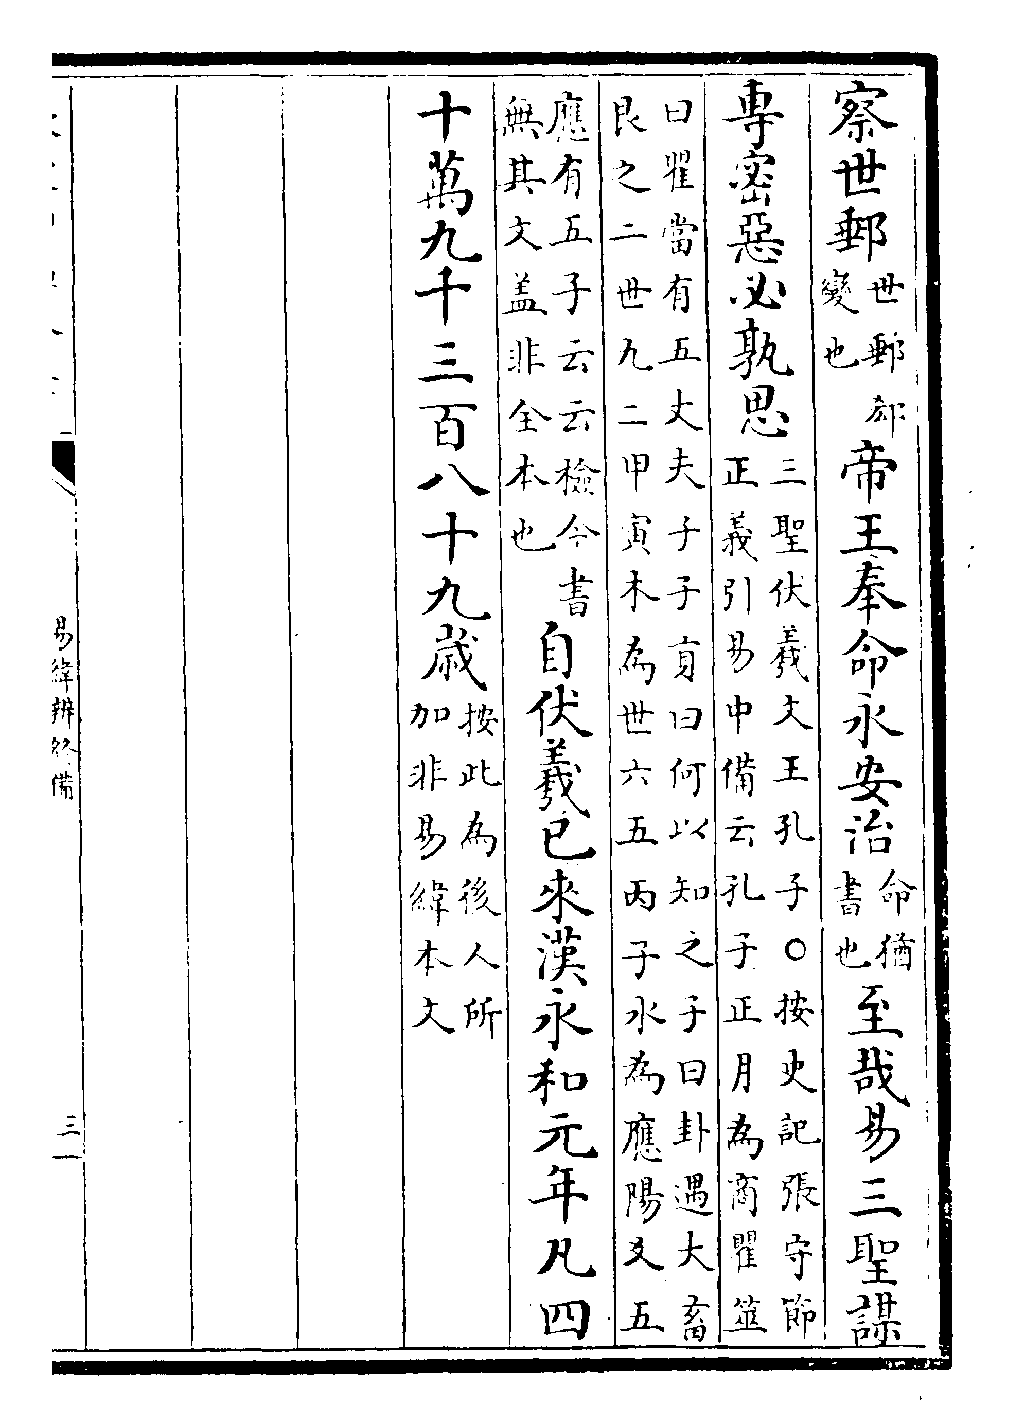 察世郵世郵郗變也帝王奉命永安治命猶書也至哉易三聖謀
專密惡必孰思三聖伏羲文王孔子○按史記張守節正義引易中備云孔子正月為商瞿筮
曰瞿當有五丈夫子子貢曰何以知之子曰卦遇大畜艮之二世九二甲寅木為世六五丙子水為應陽爻五
應有五子云云檢今書無其文盖非全本也自伏羲已來漢永和元年凡四
十萬九千三百八十九歲按此為後人所加非易緯本文
易緯辨終備
三